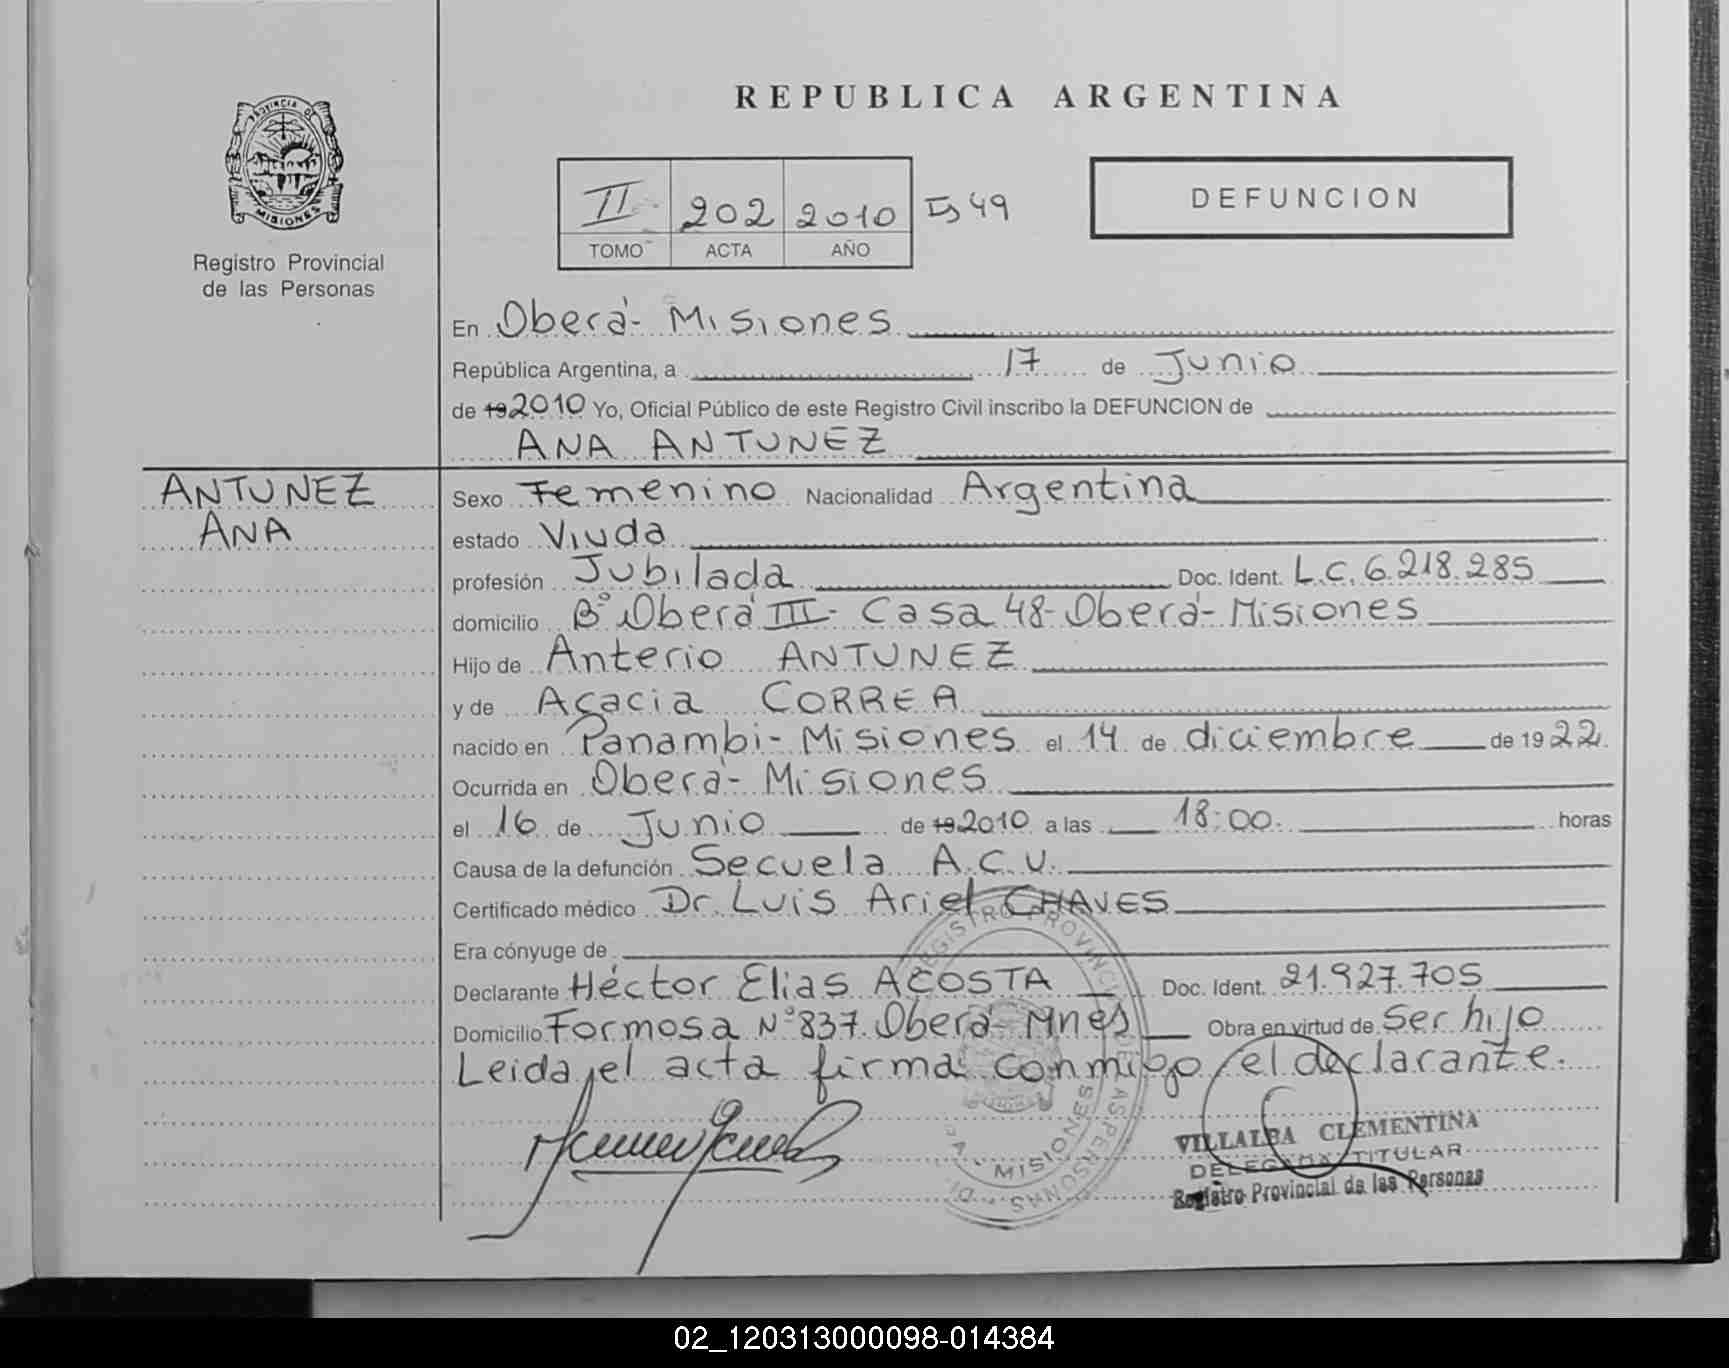 REPUBLICA ARGENTINA
PROVINCIA DE
MISIONES
Registro Provincial
de las Personas
II 202 2010 49
TOMO ACTA AÑO
DEFUNCION
En Oberá- Misiones
República Argentina, a 17 de Junio
de 19 2010 Yo, Oficial Público de este Registro Civil inscribo la DEFUNCION de
ANA ANTUNEZ
ANTUNEZ
ANA
Sexo Femenino Nacionalidad Argentina
estado Viuda
profesión Jubilada Doc. Ident. L.C. 6.218.285
domicilio B° Oberá III- Casa 48- Oberá- Misiones
Hijo de Anterio ANTUNEZ
y de Acacia CORREA
nacido en Panambi- Misiones el 14 de diciembre de 1922
Ocurrida en Oberá- Misiones
el 16 de Junio de 19 2010 a las 18:00 horas
Causa de la defunción Secuela A.C.V.
Certificado médico Dr. Luis Ariel CHAVES
Era cónyuge de
Declarante Héctor Elias ACOSTA Doc. Ident. 21.927.705
Domicilio Formosa N° 837. Oberá- Mnes Obra en virtud de Ser hijo
Leida el acta firma conmigo el declarante.
REGISTRO PROVINCIAL DE LAS PERSONAS
MISIONES
VILLALBA CLEMENTINA
DELEGADA TITULAR
Registro Provincial de las Personas
02_120313000098-014384